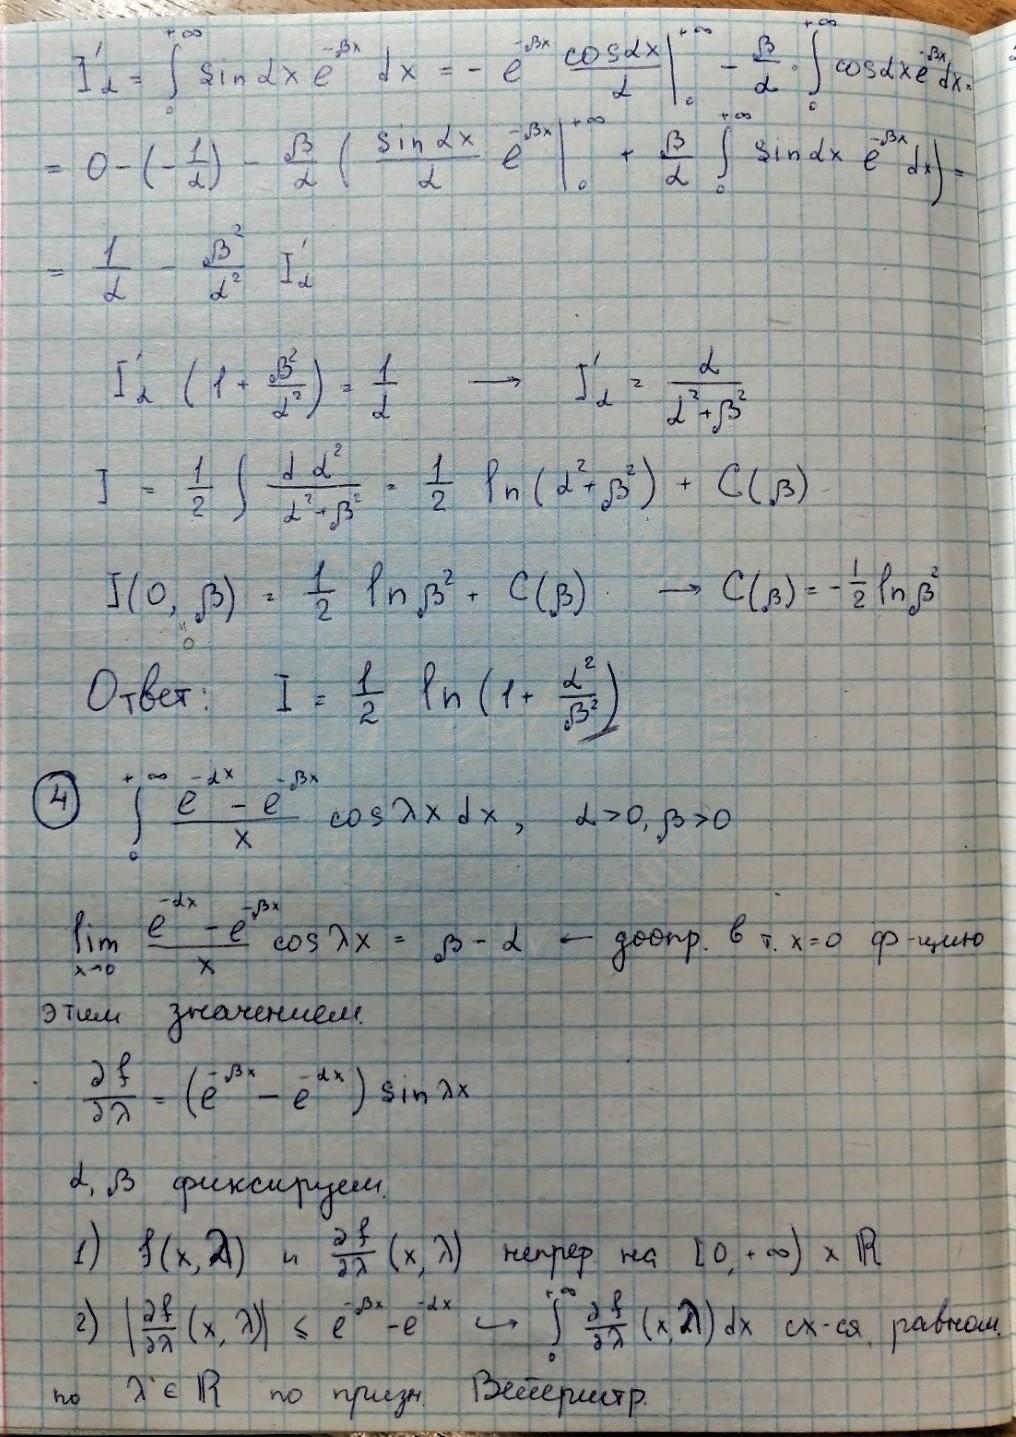 I'_α = ∫_0^{+∞} sin αx e^{-βx} dx = - e^{-βx} \frac{cos αx}{α} |_0^{+∞} - \frac{β}{α} · ∫_0^{+∞} cos αx e^{-βx} dx =
= 0 - (-\frac{1}{α}) - \frac{β}{α} ( \frac{sin αx}{α} e^{-βx} |_0^{+∞} + \frac{β}{α} ∫_0^{+∞} sin αx e^{-βx} dx ) =
= \frac{1}{α} - \frac{β^2}{α^2} I'_α
I'_α (1 + \frac{β^2}{α^2}) = \frac{1}{α} → I'_α = \frac{α}{α^2+β^2}
I = \frac{1}{2} ∫ \frac{d α^2}{α^2+β^2} = \frac{1}{2} ln(α^2+β^2) + C(β)
I(0, β) = \frac{1}{2} ln β^2 + C(β) → C(β) = -\frac{1}{2} ln β^2
"
0
Ответ: I = \frac{1}{2} ln (1 + \frac{α^2}{β^2})
4 ∫_0^{+∞} \frac{e^{-αx} - e^{-βx}}{x} cos λx dx, α>0, β>0
lim_{x→0} \frac{e^{-αx} - e^{-βx}}{x} cos λx = β - α ← доопр. в т. x=0 ф-цию
этим значением.
\frac{∂f}{∂λ} = (e^{-βx} - e^{-αx}) sin λx
α, β фиксируем.
1) f(x, λ) и \frac{∂f}{∂λ} (x, λ) непрер на [0, +∞) x ℝ
2) |\frac{∂f}{∂λ} (x, λ)| ≤ e^{-βx} - e^{-αx} ↪ ∫_0^{+∞} \frac{∂f}{∂λ} (x, λ) dx сх-ся равном.
по λ ∈ ℝ по призн. Вейерштр.